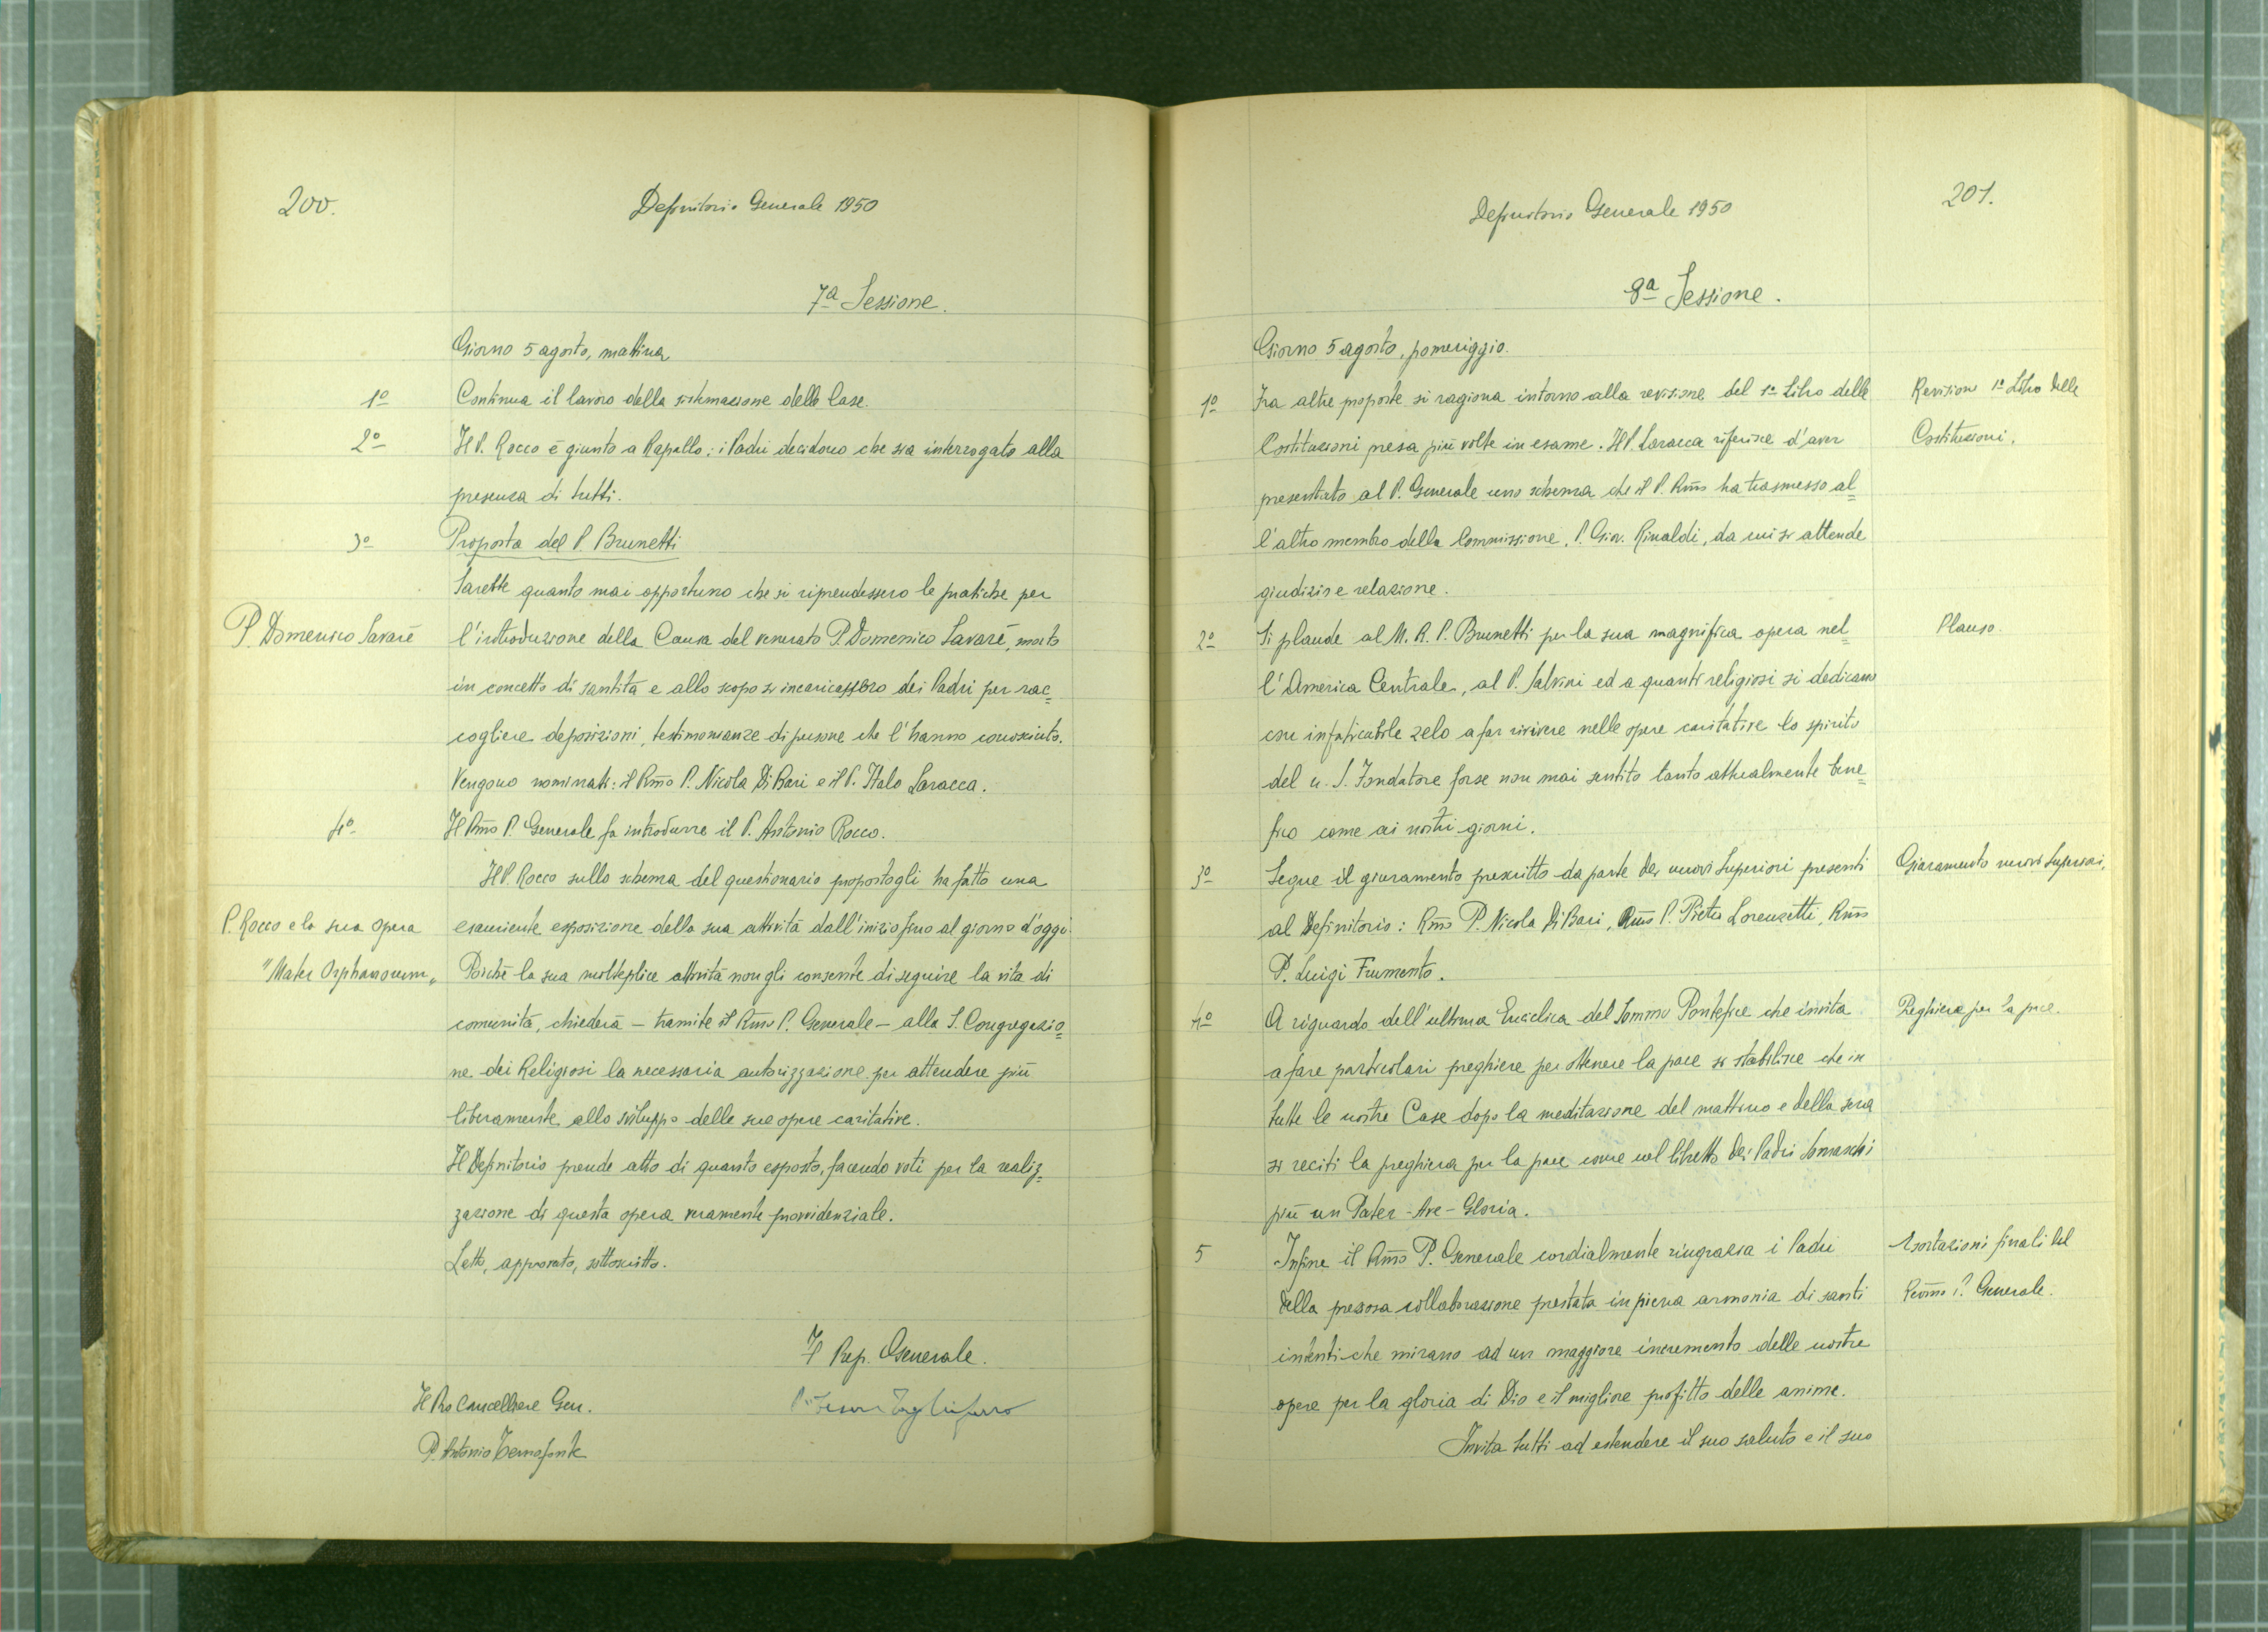 200.
Definitorio Generale 1950
7a Sessione.
Giorno 5 agosto, mattina
1o Continua il lavoro della sistemazione delle Case.
2o Il P. Rocco è giunto a Rapallo: i Padri decidono che sia interrogato alla
presenza di tutti.
3o Proposta del P. Brunetti
Sarebbe quanto mai opportuno che si riprendessero le pratiche per
P. Domenico Savarè l'introduzione della Causa del venerato P. Domenico Savarè, morto
in concetto di santità e allo scopo si incaricassero dei Padri per rac=
cogliere deposizioni, testimonianze di persone che l'hanno conosciuto.
Vengono nominati: il Rmo P. Nicola Di Bari e il P. Italo Laracca.
4o Il Rmo P. Generale fa introdurre il P. Antonio Rocco.
Il P. Rocco sullo schema del questionario propostogli ha fatto una
P. Rocco e la sua opera esauriente esposizione della sua attività dall'inizio fino al giorno d'oggi.
"Mater Orphanorum" Poichè la sua molteplice attività non gli consente di seguire la vita di
comunità, chiederà - tramite il Rmo P. Generale - alla S. Congregazio=
ne dei Religiosi la necessaria autorizzazione per attendere più
liberamente allo sviluppo delle sue opere caritative.
Il Definitorio prende atto di quanto esposto, facendo voti per la realiz=
zazione di questa opera veramente provvidenziale.
Letto, approvato, sottoscritto.
Il Prep. Generale.
Il Pro Cancelliere Gen.
P. Cesare Tagliaferro
P. Antonio Temofonte
201.
Definitorio Generale 1950
8a Sessione.
Giorno 5 agosto, pomeriggio.
1o Fra altre proposte si ragiona intorno alla revisione del 1o Libro delle Revisione 1o Libro delle
Costituzioni presa più volte in esame. Il P. Laracca riferisce d'aver Costituzioni.
presentato al P. Generale uno schema che il P. Rmo ha trasmesso al=
l'altro membro della Commissione, P. Giov. Rinaldi, da cui si attende
giudizio e relazione.
2o Si plaude al M. R. P. Brunetti per la sua magnifica opera nel= Plauso.
l'America Centrale, al P. Salvini ed a quanti religiosi si dedicano
con infaticabile zelo a far rivivere nelle opere caritative lo spirito
del n. S. Fondatore forse non mai sentito tanto attualmente bene=
fico come ai nostri giorni.
3o Segue il giuramento prescritto da parte dei nuovi Superiori presenti Giuramento nuovi Superiori.
al Definitorio: Rmo P. Nicola Di Bari, Rmo P. Pietro Lorenzetti, Rmo
P. Luigi Frumento.
4o A riguardo dell'ultima Enciclica del Sommo Pontefice che invita Preghiera per la pace.
a fare particolari preghiere per ottenere la pace si stabilisce che in
tutte le nostre Case dopo la meditazione del mattino e della sera
si reciti la preghiera per la pace come nel libretto dei Padri Somaschi
più un Pater - Ave - Gloria.
5 Infine il Rmo P. Generale cordialmente ringrazia i Padri Esortazioni finali del
della preziosa collaborazione prestata in piena armonia di santi Revmo P. Generale.
intenti che mirano ad un maggiore incremento delle nostre
opere per la gloria di Dio e il migliore profitto delle anime.
Invita tutti ad estendere il suo saluto e il suo